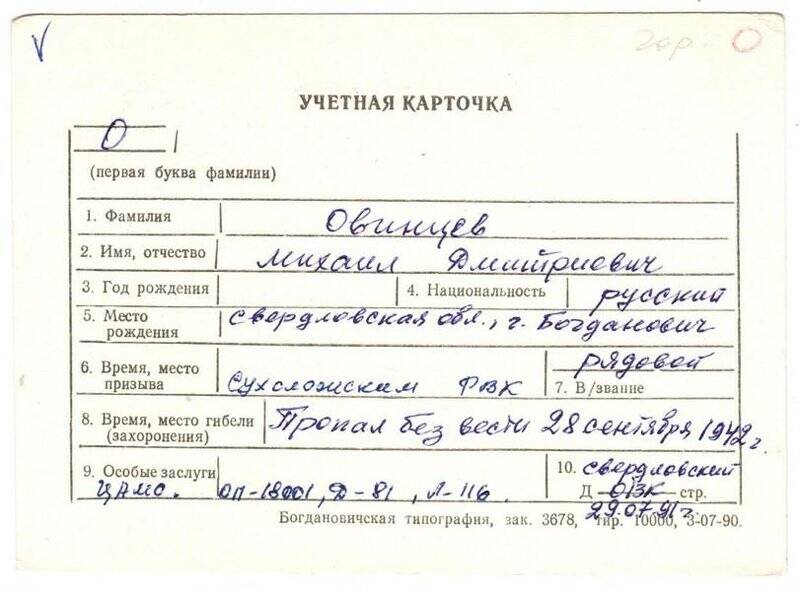 V гор. О
УЧЕТНАЯ КАРТОЧКА
О
(первая буква фамилии)
1. Фамилия Овинцев
2. Имя, отчество Михаил Дмитриевич
3. Год рождения 4. Национальность русский
5. Место рождения свердловская обл., г. Богданович
6. Время, место призыва Сухоложским РВК рядовой 7. В/звание
8. Время, место гибели (захоронения) Пропал без вести 28 сентября 1942 г.
9. Особые заслуги 10. свердловский
ЦАМО. оп-18001, Д-81, Л-116. Д ОВК стр.
29.07.91г
Богдановичская типография, зак. 3678, тир. 10000, 3-07-90.